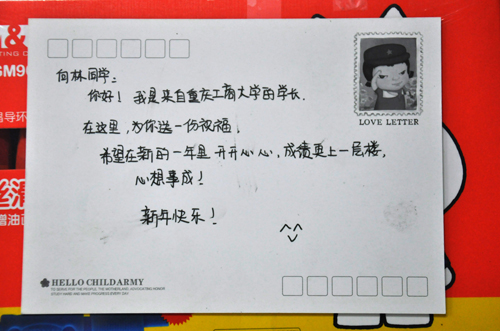 向林同学：
你好！我是来自重庆工商大学的学长.
在这里，为你送一份祝福，
希望在新的一年里 开开心心，成绩更上一层楼，
心想事成！
新年快乐！
^^
LOVE LETTER
HELLO CHILDARMY